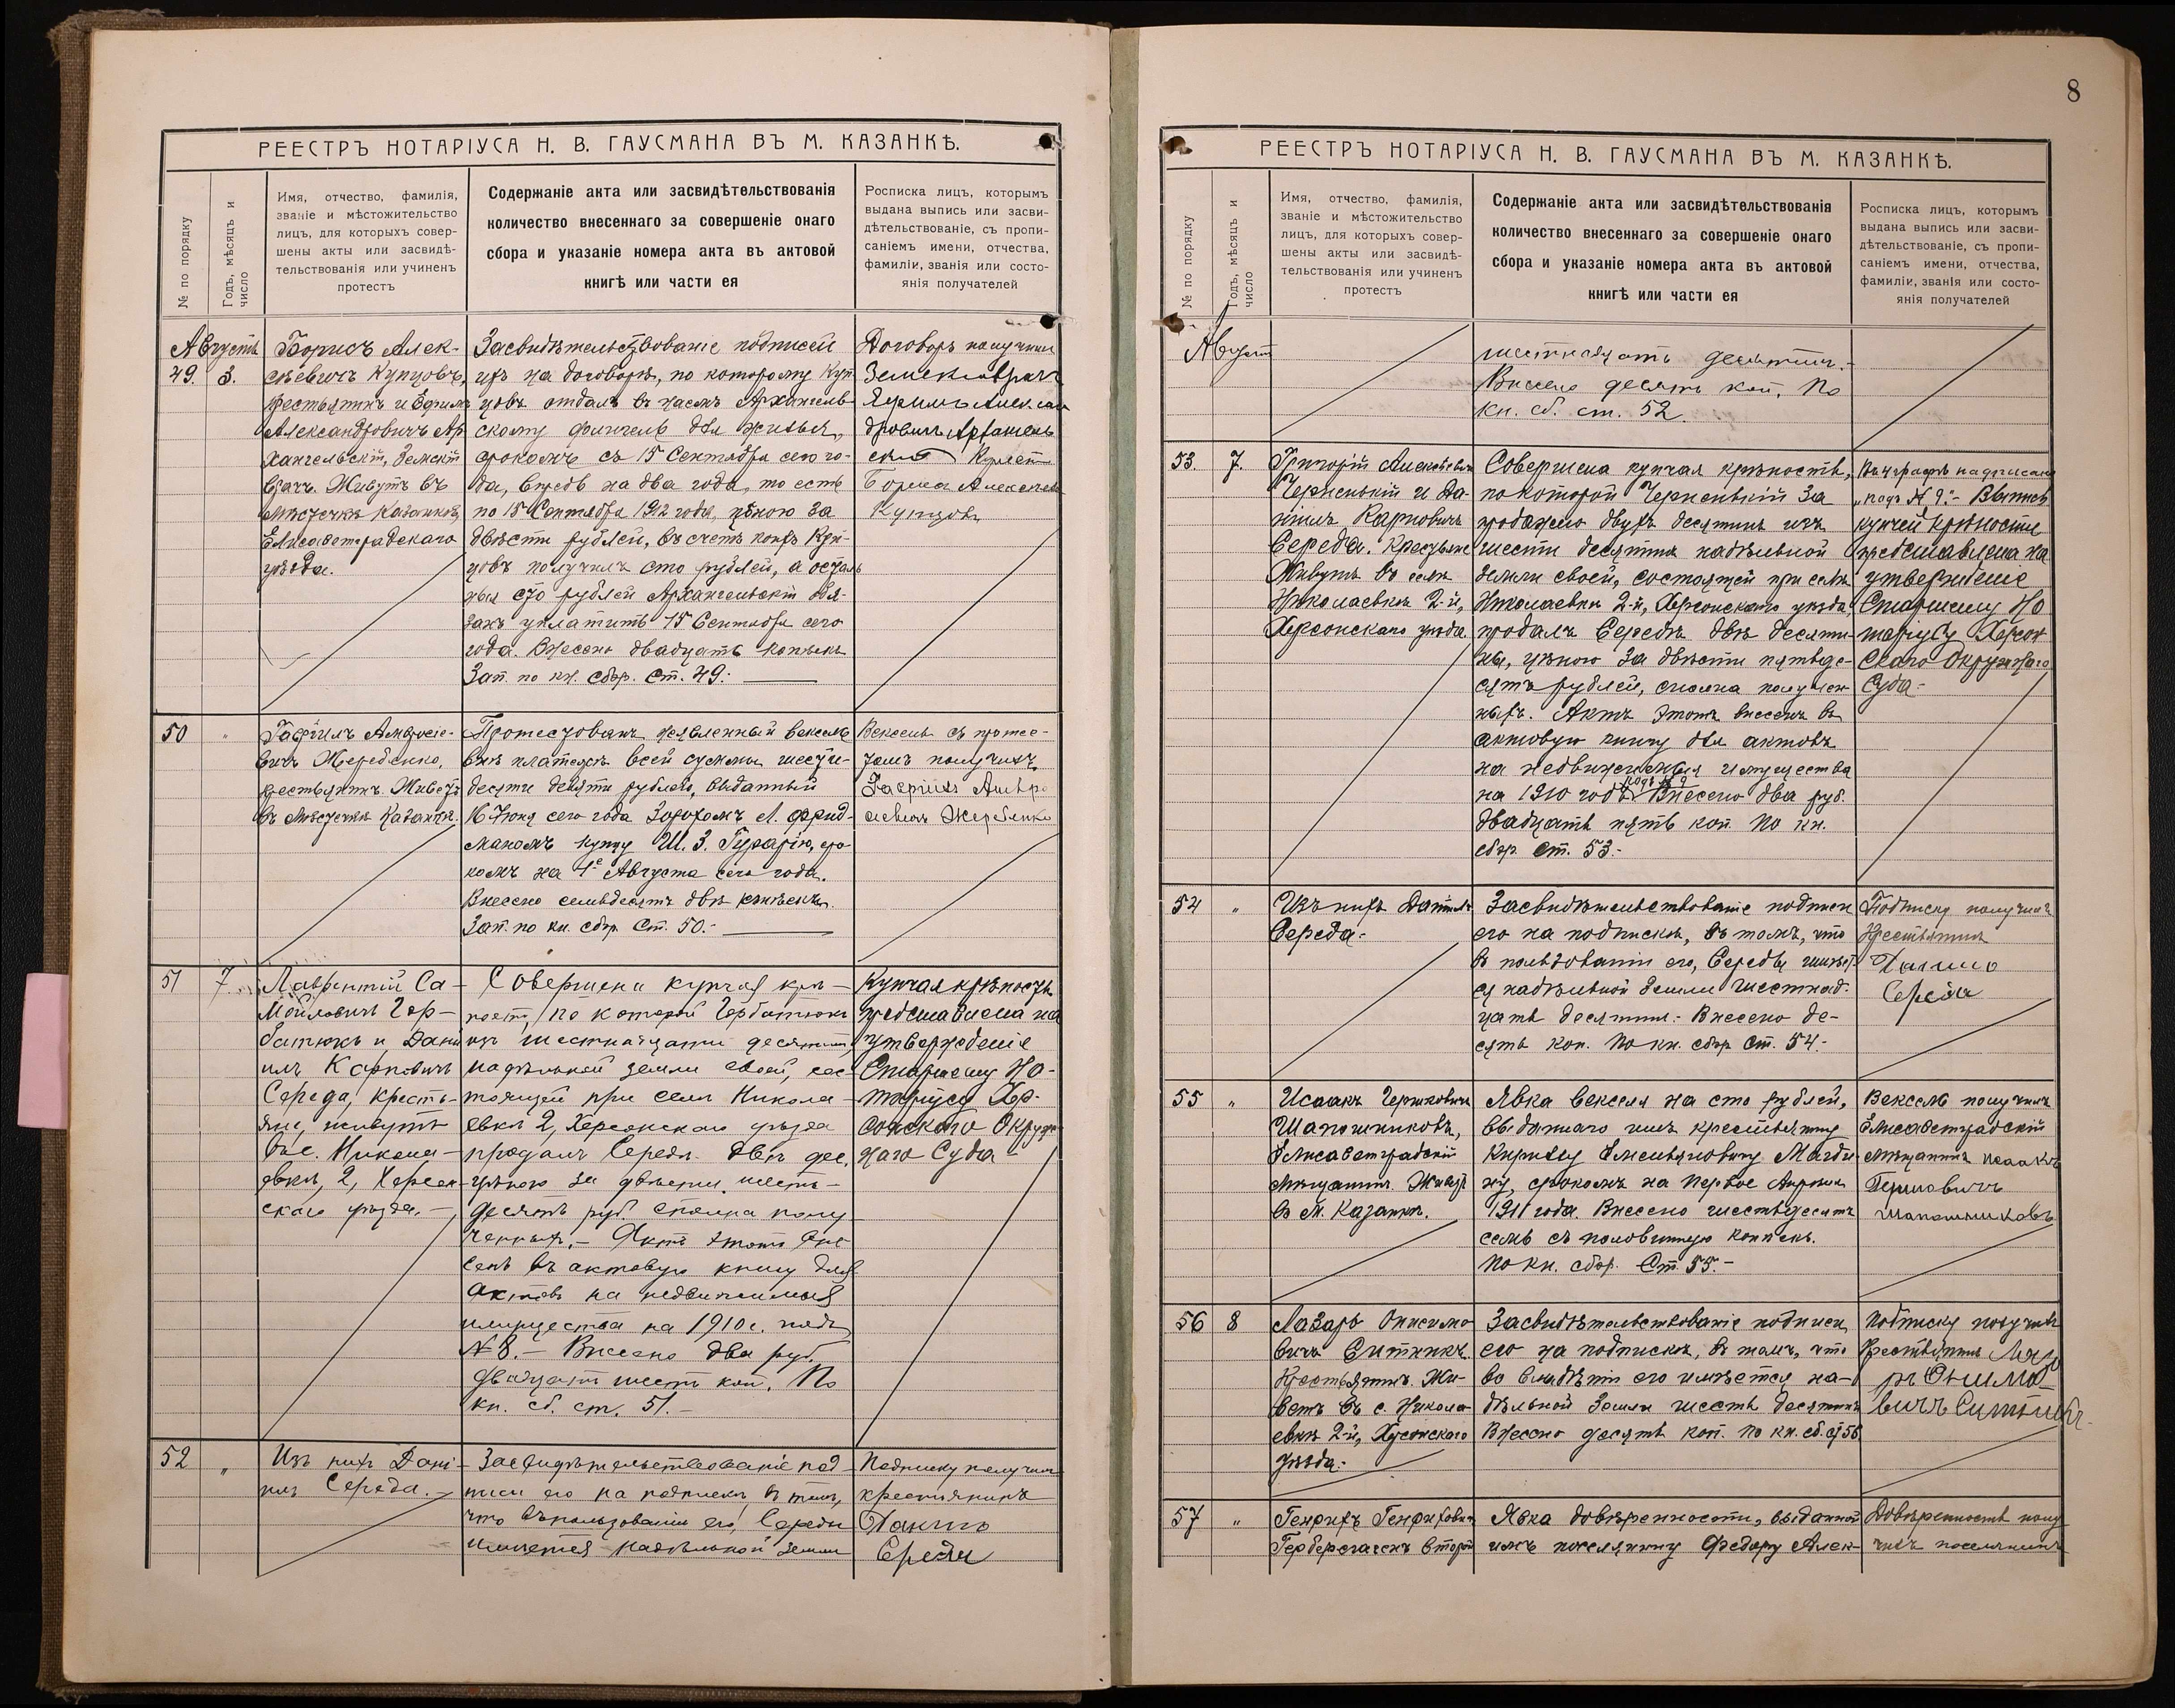 РЕЕСТРЪ НОТАРІУСА Н. В. ГАУСМАНА ВЪ М. КАЗАНКѢ.
№ по порядку
Годъ, мѣсяцъ и число
Имя, отчество, фамилія,
званіе и мѣстожительство
лицъ, для которыхъ совер-
шены акты или засвидѣ-
тельствованія или учиненъ
протестъ
Содержаніе акта или засвидѣтельствованія
количество внесеннаго за совершеніе онаго
сбора и указаніе номера акта въ актовой
книгѣ или части ея
Росписка лицъ, которымъ
выдана выпись или засви-
дѣтельствованіе, съ пропи-
саніемъ имени, отчества,
фамиліи, званія или состо-
янія получателей
Августъ
49. 3.
Борисъ Алек-
сѣевичъ Купцовъ,
крестьянинъ и Ефимъ
Александровичъ Ар
хангельскій, Земскій
врачъ. Живутъ въ
мѣстечкѣ Казанкѣ,
Елисаветградскаго
уѣзда.
Засвидѣтельствованіе подписей
ихъ на договорѣ, по которому Куп
цовъ отдалъ въ наемъ Архангель
скому флигель для жилья,
срокомъ съ 15 Сентября сего го-
да, впредь на два года, то есть
по 15 Сентября 1912 года, цѣною за
двѣсти рублей, въ счетъ коихъ Куп-
цовъ получилъ сто рублей, а осталь
ныя сто рублей Архангельскій обя-
занъ уплатить 15 Сентября сего
года. Внесено двадцать копѣекъ
Зап. по кн. сбор. ст. 49.
Договоръ получили
Земскій врачъ
Ефимъ Алексан
дровичъ Архангель
Бориса Алексѣев
Купцовъ
50 "
Гавріилъ Амвросіе-
вичъ Жеребенко,
крестьянинъ. Живетъ
въ мѣстечкѣ Казанкѣ.
Протестованъ явленный вексель
въ платежѣ всей суммы шести-
десяти девяти рублей, выданный
16 Іюня сего года Зорохомъ Л. Фрид-
маномъ купцу Ш. З. Гурарію, сро-
комъ на 1е Августа сего года.
Внесено семьдесятъ двѣ копѣйки.
Зап. по кн. сбор. ст. 50.-
Вексель съ протес-
томъ получилъ
Гавріилъ Амвро
сіевичъ Жеребенко
51 7
Лаврентій Са-
мойловичъ Гор-
батюкъ и Дани
илъ Карповичъ
Середа, кресть-
яне, живутъ
въ с. Никола-
евкѣ, 2, Херсон-
скаго уѣзда.-
Совершена купчая крѣ-
пость, по которой Горбатюкъ
изъ шестнадцати десятинъ
надѣльной земли своей, сос-
тоящей при селѣ Никола-
евкѣ 2, Херсонскаго уѣзда
продалъ Середѣ двѣ дес.
цѣною за двѣсти шесть-
десятъ руб. сполна полу
ченныхъ.- Актъ этотъ вне
сенъ въ актовую книгу для
актовъ на недвижимыя
имущества на 1910 г. подъ
№ 8.- Внесено два руб.
двадцать шесть коп. По
кн. сб. ст. 51.-
Купчая крѣпость
представлена на
утвержденіе
Старшему Но-
таріусу Хер-
сонскаго Окруж
наго Суда
52 "
Изъ нихъ Дані-
илъ Середа.-
Засвидѣтельствованіе под
писи его на подпискѣ, въ томъ,
что въ пользованіи его, Середы
имѣется надѣльной земли
Подписку получилъ
крестьянинъ
Данило
Середа
8
РЕЕСТРЪ НОТАРІУСА Н. В. ГАУСМАНА ВЪ М. КАЗАНКѢ.
№ по порядку
Годъ, мѣсяцъ и число
Имя, отчество, фамилія,
званіе и мѣстожительство
лицъ, для которыхъ совер-
шены акты или засвидѣ-
тельствованія или учиненъ
протестъ
Содержаніе акта или засвидѣтельствованія
количество внесеннаго за совершеніе онаго
сбора и указаніе номера акта въ актовой
книгѣ или части ея
Росписка лицъ, которымъ
выдана выпись или засви-
дѣтельствованіе, съ пропи-
саніемъ имени, отчества,
фамиліи, званія или состо-
янія получателей
Август
шестнадцать десятин.-
Внесено десять коп. По
кн. сб. ст. 52
53. 7.
Григорій Алексѣевичъ
Черненькій и Да-
ніилъ Карповичъ
Середа. Крестьяне
Живутъ въ селѣ
Николаевкѣ 2-й,
Херсонскаго уѣзда
Совершена купчая крѣпость,
по которой Черненькій за
продажею двухъ десятинъ изъ
шести десятинъ надѣльной
земли своей, состоящей при селѣ
Николаевкѣ 2-й, Херсонскаго уѣзда,
продалъ Середѣ двѣ десяти-
ны, цѣною за двѣсти пятьде-
сятъ рублей, сполна получен-
ныхъ. Актъ этотъ внесенъ въ
актовую книгу для актовъ
на недвижимыя имущества
на 1910 годъ подъ № 9 Внесено два руб.
двадцать пять коп. По кн.
сбор. ст. 53.-
Въ 4 графѣ надписано
„подъ № 9".- Выпись
купчей крѣпости
представлена на
утвержденіе
Старшему Но
таріусу Херсон
скаго Окружнаго
Суда.-
54 "
Изъ нихъ Даніилъ
Середа.-
Засвидѣтельствованіе подписи
его на подпискѣ, въ томъ, что
въ пользованіи его, Середы имѣет
ся надѣльной земли шестнад-
цать десятинъ.- Внесено де-
сять коп. По кн. сбор. ст. 54.-
Подписку получилъ
Крестьянинъ
Данило
Середа
55 "
Исаакъ Гершковичъ
Шапошниковъ,
Елисаветградскій
мѣщанинъ. Живетъ
въ м. Казанкѣ.
Явка векселя на сто рублей,
выданнаго имъ крестьянину
Кириллу Емельяновичу Магди
ну, срокомъ на первое Апрѣля
1911 года. Внесено шестьдесятъ
семь съ половиною копѣекъ.
По кн. сбор. ст. 55.-
Вексель получилъ
Елисаветградскій
мѣщанинъ Исаакъ
Гершковичъ
Шапошниковъ
56 8
Лазарь Онисимо
вичъ Ситникъ.
Крестьянинъ. Жи-
ветъ въ с. Никола-
евкѣ 2-й, Херсонскаго
уѣзда.-
Засвидѣтельствованіе подписи
его на подпискѣ, въ томъ, что
во владѣніи его имѣется на-
дѣльной земли шесть десятинъ
Внесено десять коп. По кн. сб. ст 56
Подписку получилъ
Крестьянинъ Лаза
ръ Онисимо
вичъ Ситникъ.
57 "
Генрихъ Генриховичъ
Второй
Явка довѣренности, выданной
имъ поселянину Федору Алек-
Довѣренность полу
чилъ поселянинъ